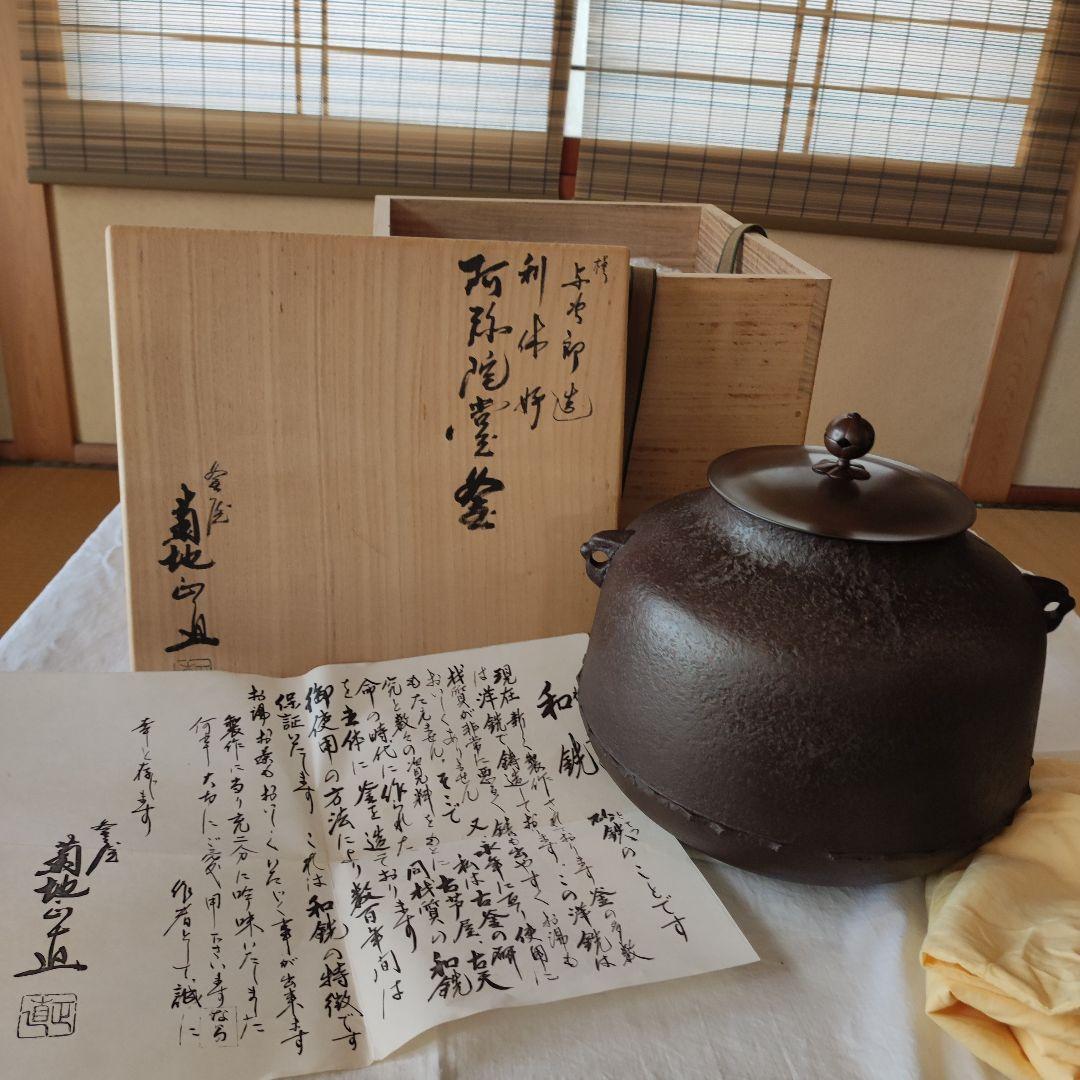 与次郎造
利休好
阿弥陀堂釜
釜屋
菊地正直
和銑
砂鉄のことです
現在新しく製作されております釜の多数
は洋銑で鋳造しております。この洋銑は
材質が非常に悪く錆も出やすくお湯も
おいしくありません 又永年に亘り使用に
もたえません。そこで 私は古釜の研
究と数々の資料をもとに古芦屋、古天
命の時代に作られた同材質の和銑
を主体に釜を造っております
御使用の方法により数百年間は
保証いたします これは和銑の特徴です
お湯お茶もおいしくいただく事が出来ます
製作に当り充二分に吟味いたしました
何卒大切にご愛用下さいますなら
作者として、誠に
幸と存じます
釜屋
菊地正直
正直